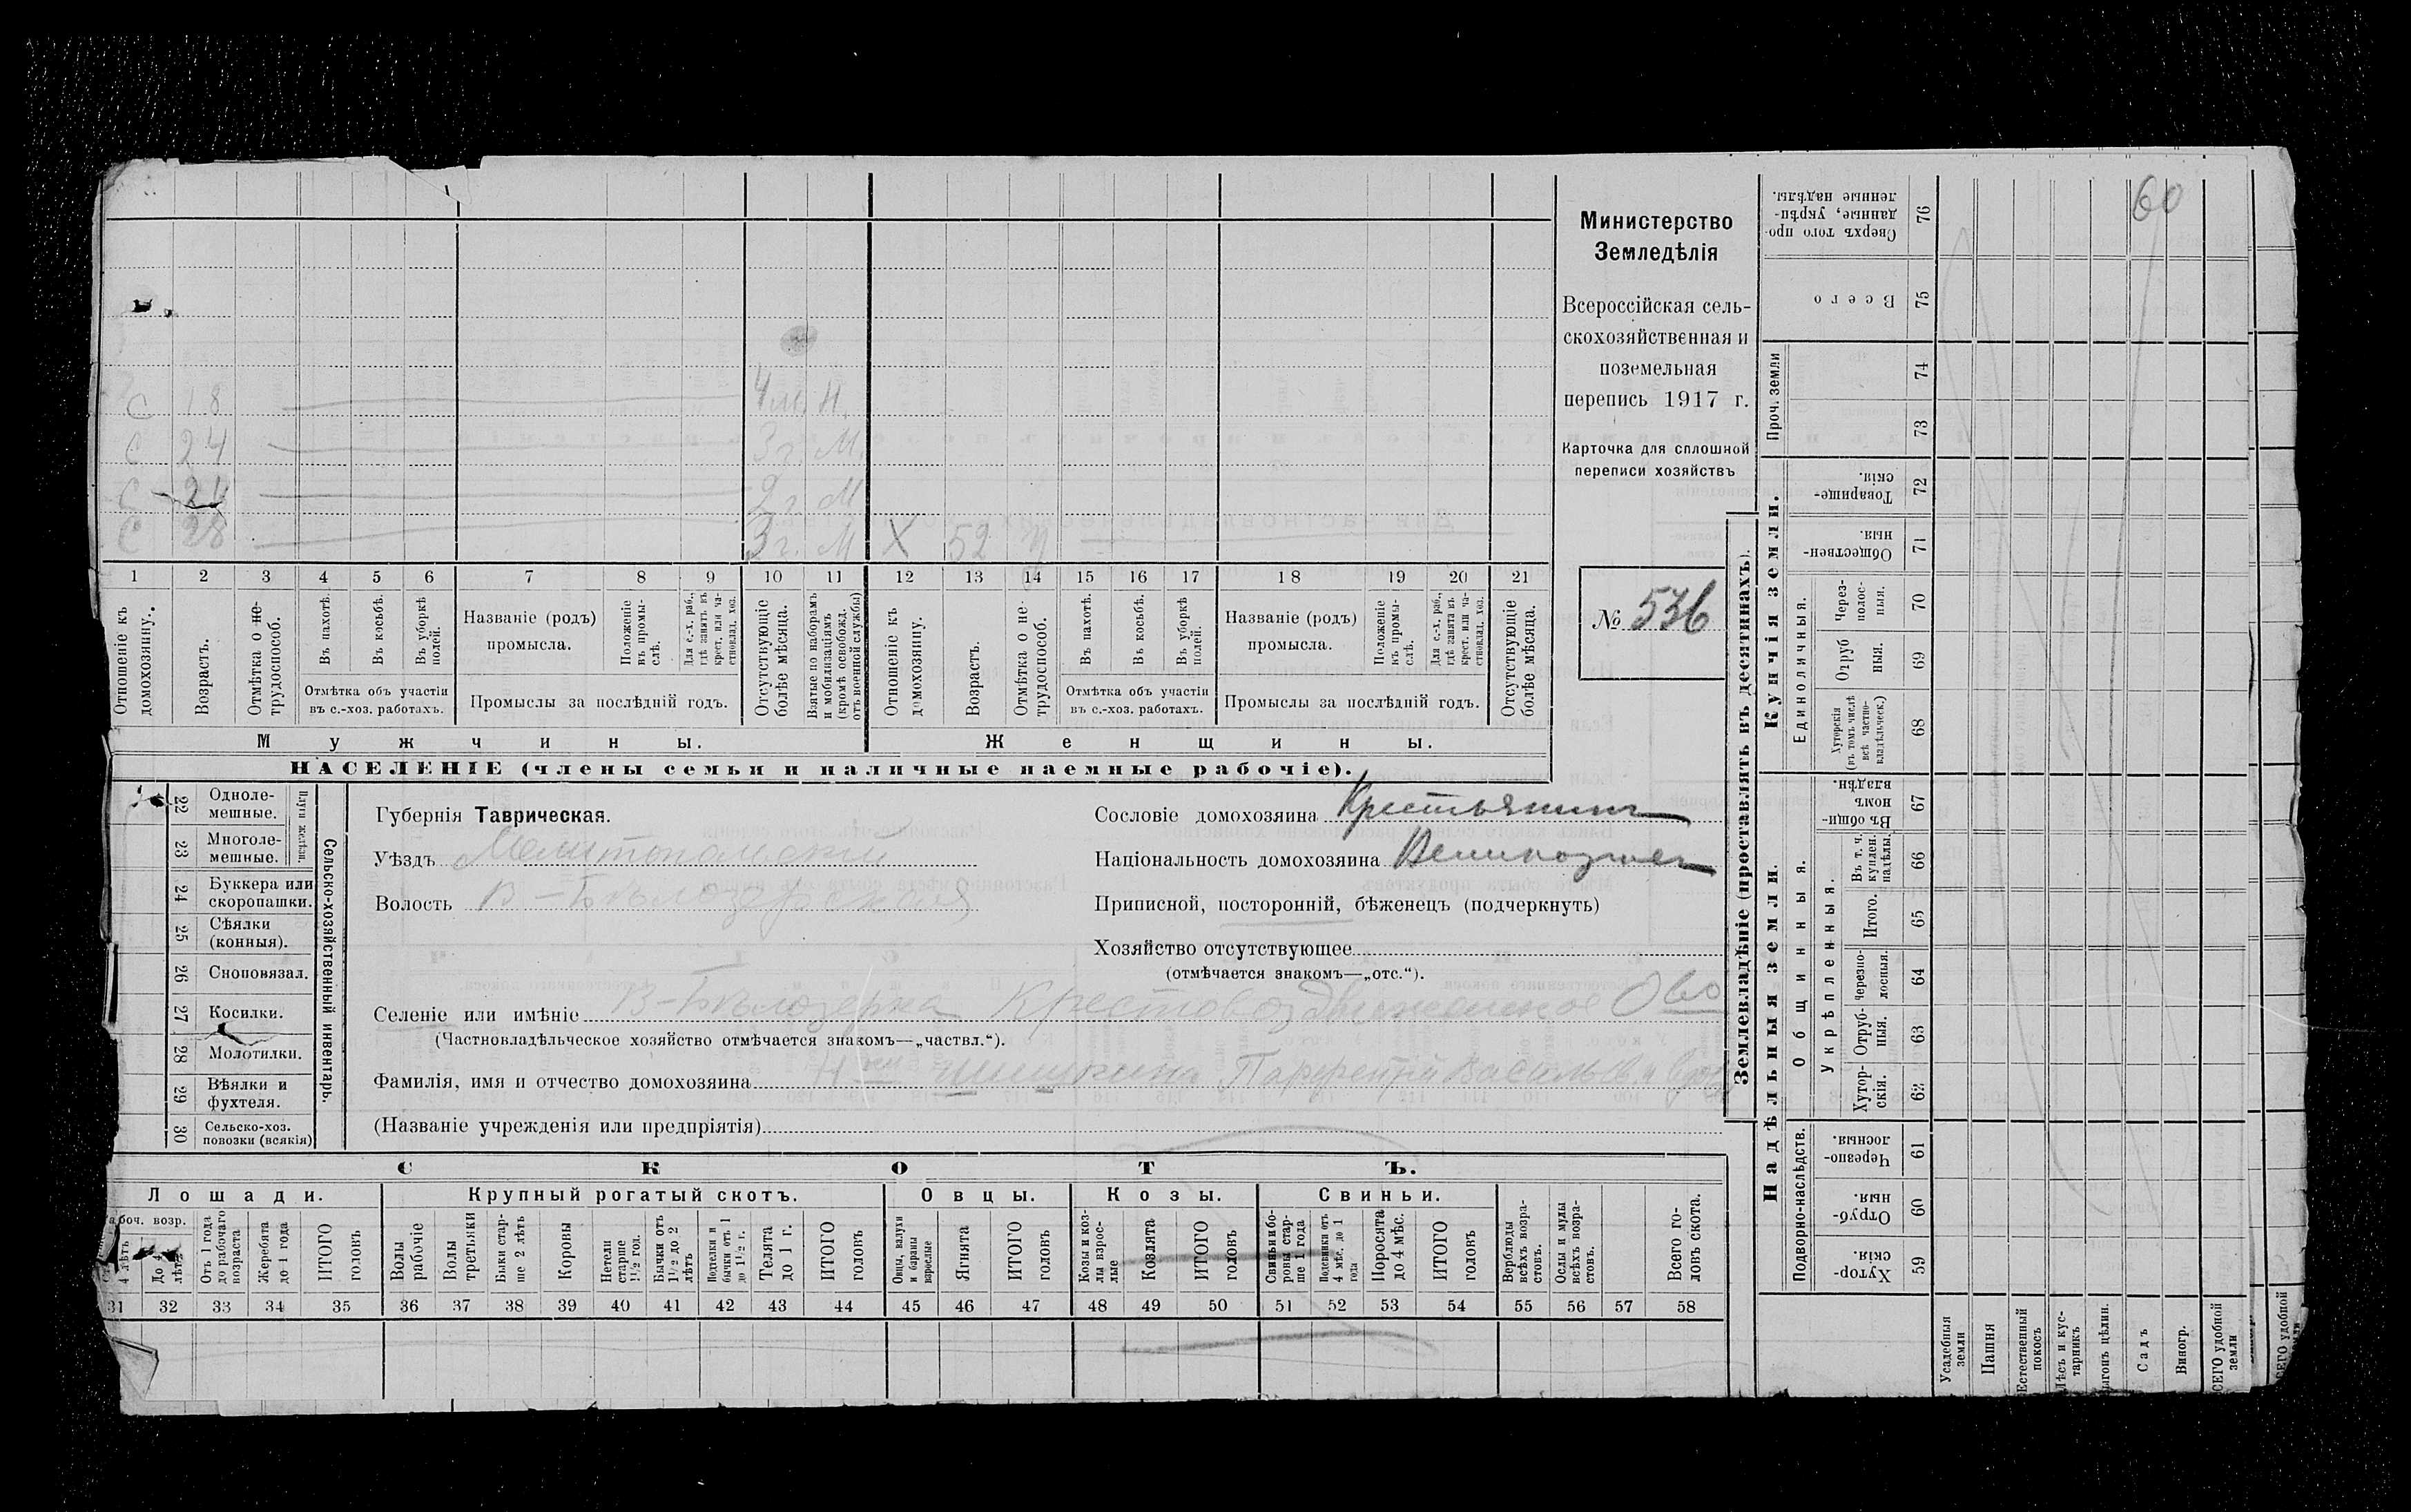 60
С 18 4 м. Н.
С 24 3 г. М.
С 24 2 г. М
С 28 3 г. М Х 52
1 2 3 4 5 6 7 8 9 10 11 12 13 14 15 16 17 18 19 20 21
Отношеніе къ домохозяину.
Возрастъ.
Отмѣтка о не-трудоспособ.
Въ пахотѣ.
Въ косьбѣ.
Въ уборкѣ полей.
Отмѣтка объ участіи въ с.-хоз. работахъ.
Названіе (родъ) промысла.
Положеніе въ промы-слѣ.
Для с.-х. раб., гдѣ занятъ въ крест. или ча-стновлад. хоз.
Промыслы за послѣдній годъ.
Отсутствующіе болѣе мѣсяца.
Взятые по наборамъ и мобилизаціямъ (кромѣ освобожд. отъ военной службы)
Отношеніе къ домохозяину.
Возрастъ.
Отмѣтка о не-трудоспособ.
Въ пахотѣ.
Въ косьбѣ.
Въ уборкѣ полей.
Отмѣтка объ участіи въ с.-хоз. работахъ.
Названіе (родъ) промысла.
Положеніе въ промы-слѣ.
Для с.-х. раб., гдѣ занята въ крест. или ча-стновлад. хоз.
Промыслы за послѣдній годъ.
Отсутствующіе болѣе мѣсяца.
Мужчины.
Женщины.
НАСЕЛЕНІЕ (члены семьи и наличные наемные рабочіе).
Министерство
Земледѣлія
Всероссійская сель-
скохозяйственная и
поземельная
перепись 1917 г.
Карточка для сплошной
переписи хозяйствъ
№ 536
22 Одноле-мешные.
23 Многоле-мешные.
Плуги желѣзн.
24 Буккера или скоропашки.
25 Сѣялки (конныя).
26 Сноповязал.
27 Косилки.
28 Молотилки.
29 Вѣялки и фухтеля.
30 Сельско-хоз. повозки (всякія)
Сельско-хозяйственный инвентарь.
Губернія Таврическая.
Уѣздъ Мелитопольскій
Волость В-Бѣлозерская
Сословіе домохозяина Крестьянинъ
Національность домохозяина
Приписной, посторонній, бѣженецъ (подчеркнуть)
Хозяйство отсутствующее
(отмѣчается знакомъ—„отс.“).
Селеніе или имѣніе В-Бѣлозерка Крестовоздвиженское О-во
(Частновладѣльческое хозяйство отмѣчается знакомъ—„частвл.“).
Фамилія, имя и отчество домохозяина Н-ки Шишкина Парфентій Васильевичъ
(Названіе учрежденія или предпріятія)
СКОТЪ.
Лошади. Крупный рогатый скотъ. Овцы. Козы. Свиньи.
боч. возр.
4 лѣтъ
До 4 лѣтъ
Отъ 1 года до рабочаго возраста
Жеребята до 1 года
ИТОГО головъ
Волы рабочіе
Волы третьяки
Быки стар-ше 2 лѣтъ
Коровы
Нетели старше 1½ год.
Бычки отъ 1½ до 2 лѣтъ
Подтелки и бычки отъ 1 до 1½ г.
Телята до 1 г.
ИТОГО головъ
Овцы, валухи и бараны взрослые
Ягнята
ИТОГО головъ
Козы и коз-лы взрос-лые
Козлята
ИТОГО головъ
Свиньи и бо-ровы стар-ше 1 года
Подсвинки отъ 4 мѣс. до 1 года
Поросята до 4 мѣс.
ИТОГО головъ
Верблюды всѣхъ возра-стовъ.
Ослы и мулы всѣхъ возра-стовъ.
Всего го-ловъ скота.
31 32 33 34 35 36 37 38 39 40 41 42 43 44 45 46 47 48 49 50 51 52 53 54 55 56 57 58
Землевладѣніе (проставлять въ десятинахъ).
Купчія земли.
Надѣльныя земли.
Проч. земли
Единоличныя.
Общинныя.
Укрѣпленныя.
Подворно-наслѣдств.
76 Сверхъ того про-данные, укрѣп-ленные надѣлы.
75 Всего
74
73
72 Товарище-скія.
71 Обществен-ныя.
70 Через-полос-ныя.
69 Отруб ныя.
68 Хуторскія (въ томъ числѣ всѣ частно-владѣльческ.)
67 Въ общи-номъ владѣн.
66 Въ т. ч. куплен. надѣлы.
65 Итого.
64 Черезпо-лосныя.
63 Отруб-ныя.
62 Хутор-скія.
61 Черезпо-лосныя.
60 Отруб-ныя.
59 Хутор-скія.
Усадебныя земли
Пашня
Естественный покосъ
Лѣсъ и кус-тарникъ
Выгонъ цѣлин.
Садъ
Виногр.
ВСЕГО удобной земли